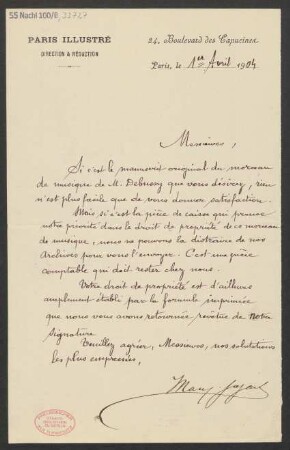 55 Nachl 100/B,
PARIS ILLUSTRÉ
DIRECTION & RÉDACTION
24, Boulevard des Capucines
Paris, le 1er Avril 1904
Messieurs,
Si c'est le manuscrit original du morceau
de musique de M. Debussy que vous désirez, rien
n'est plus facile que de vous donner satisfaction.
Mais si c'est la pièce de caisse qui prouve
notre priorité dans le droit de propriété de ce morceau
de musique, nous ne pouvons la distraire de nos
Archives pour vous l'envoyer. C'est une pièce
comptable qui doit rester chez nous.
Votre droit de propriété est d'ailleurs
amplement établi par la formule imprimée
que nous vous avons retournée, revêtue de notre
signature.
Veuillez agréer, Messieurs, nos salutations
les plus empressées,